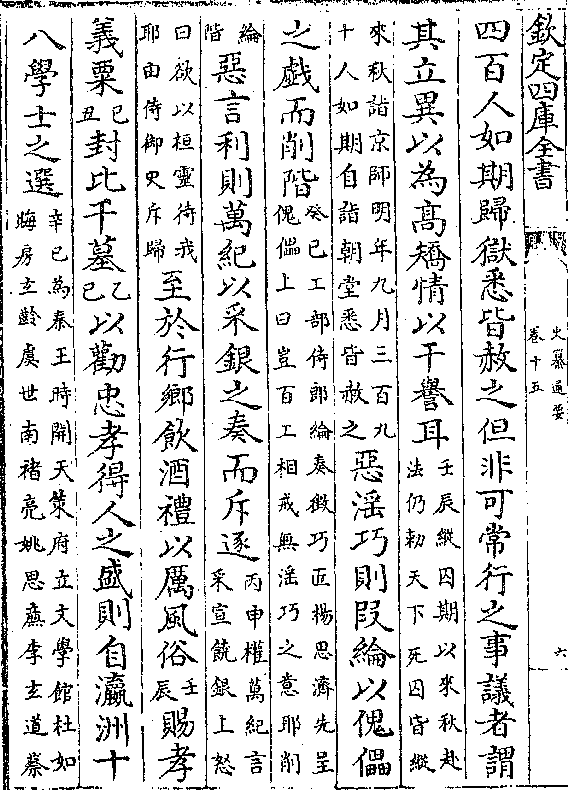 欽定四庫全書
史纂通要
卷十五
六
四百人如期歸獄悉皆赦之但非可常行之事議者謂
其立異以為高矯情以干譽耳
壬辰縱囚期以來秋赴
法仍勅天下死囚皆縱
來秋詣京師明年九月三百九
十人如期自詣朝堂悉皆赦之
惡淫巧則叚綸以傀儡
之戯而削階
癸已工部侍郎綸奏徵巧匠楊思濟先呈
傀儡上曰豈百工相戒無淫巧之意耶削
綸
階
惡言利則萬紀以采銀之奏而斥逐
丙申權萬紀言
采宣饒銀上怒
曰欲以桓靈待我
耶由侍御史斥歸
至於行鄉飲酒禮以厲風俗
壬
辰
賜孝
義粟
已
丑
封比干墓
乙
已
以勸忠孝得人之盛則自瀛洲十
八學士之選
辛已為秦王時開天策府立文學館杜如
晦房玄齡虞世南褚亮姚思亷李玄道蔡